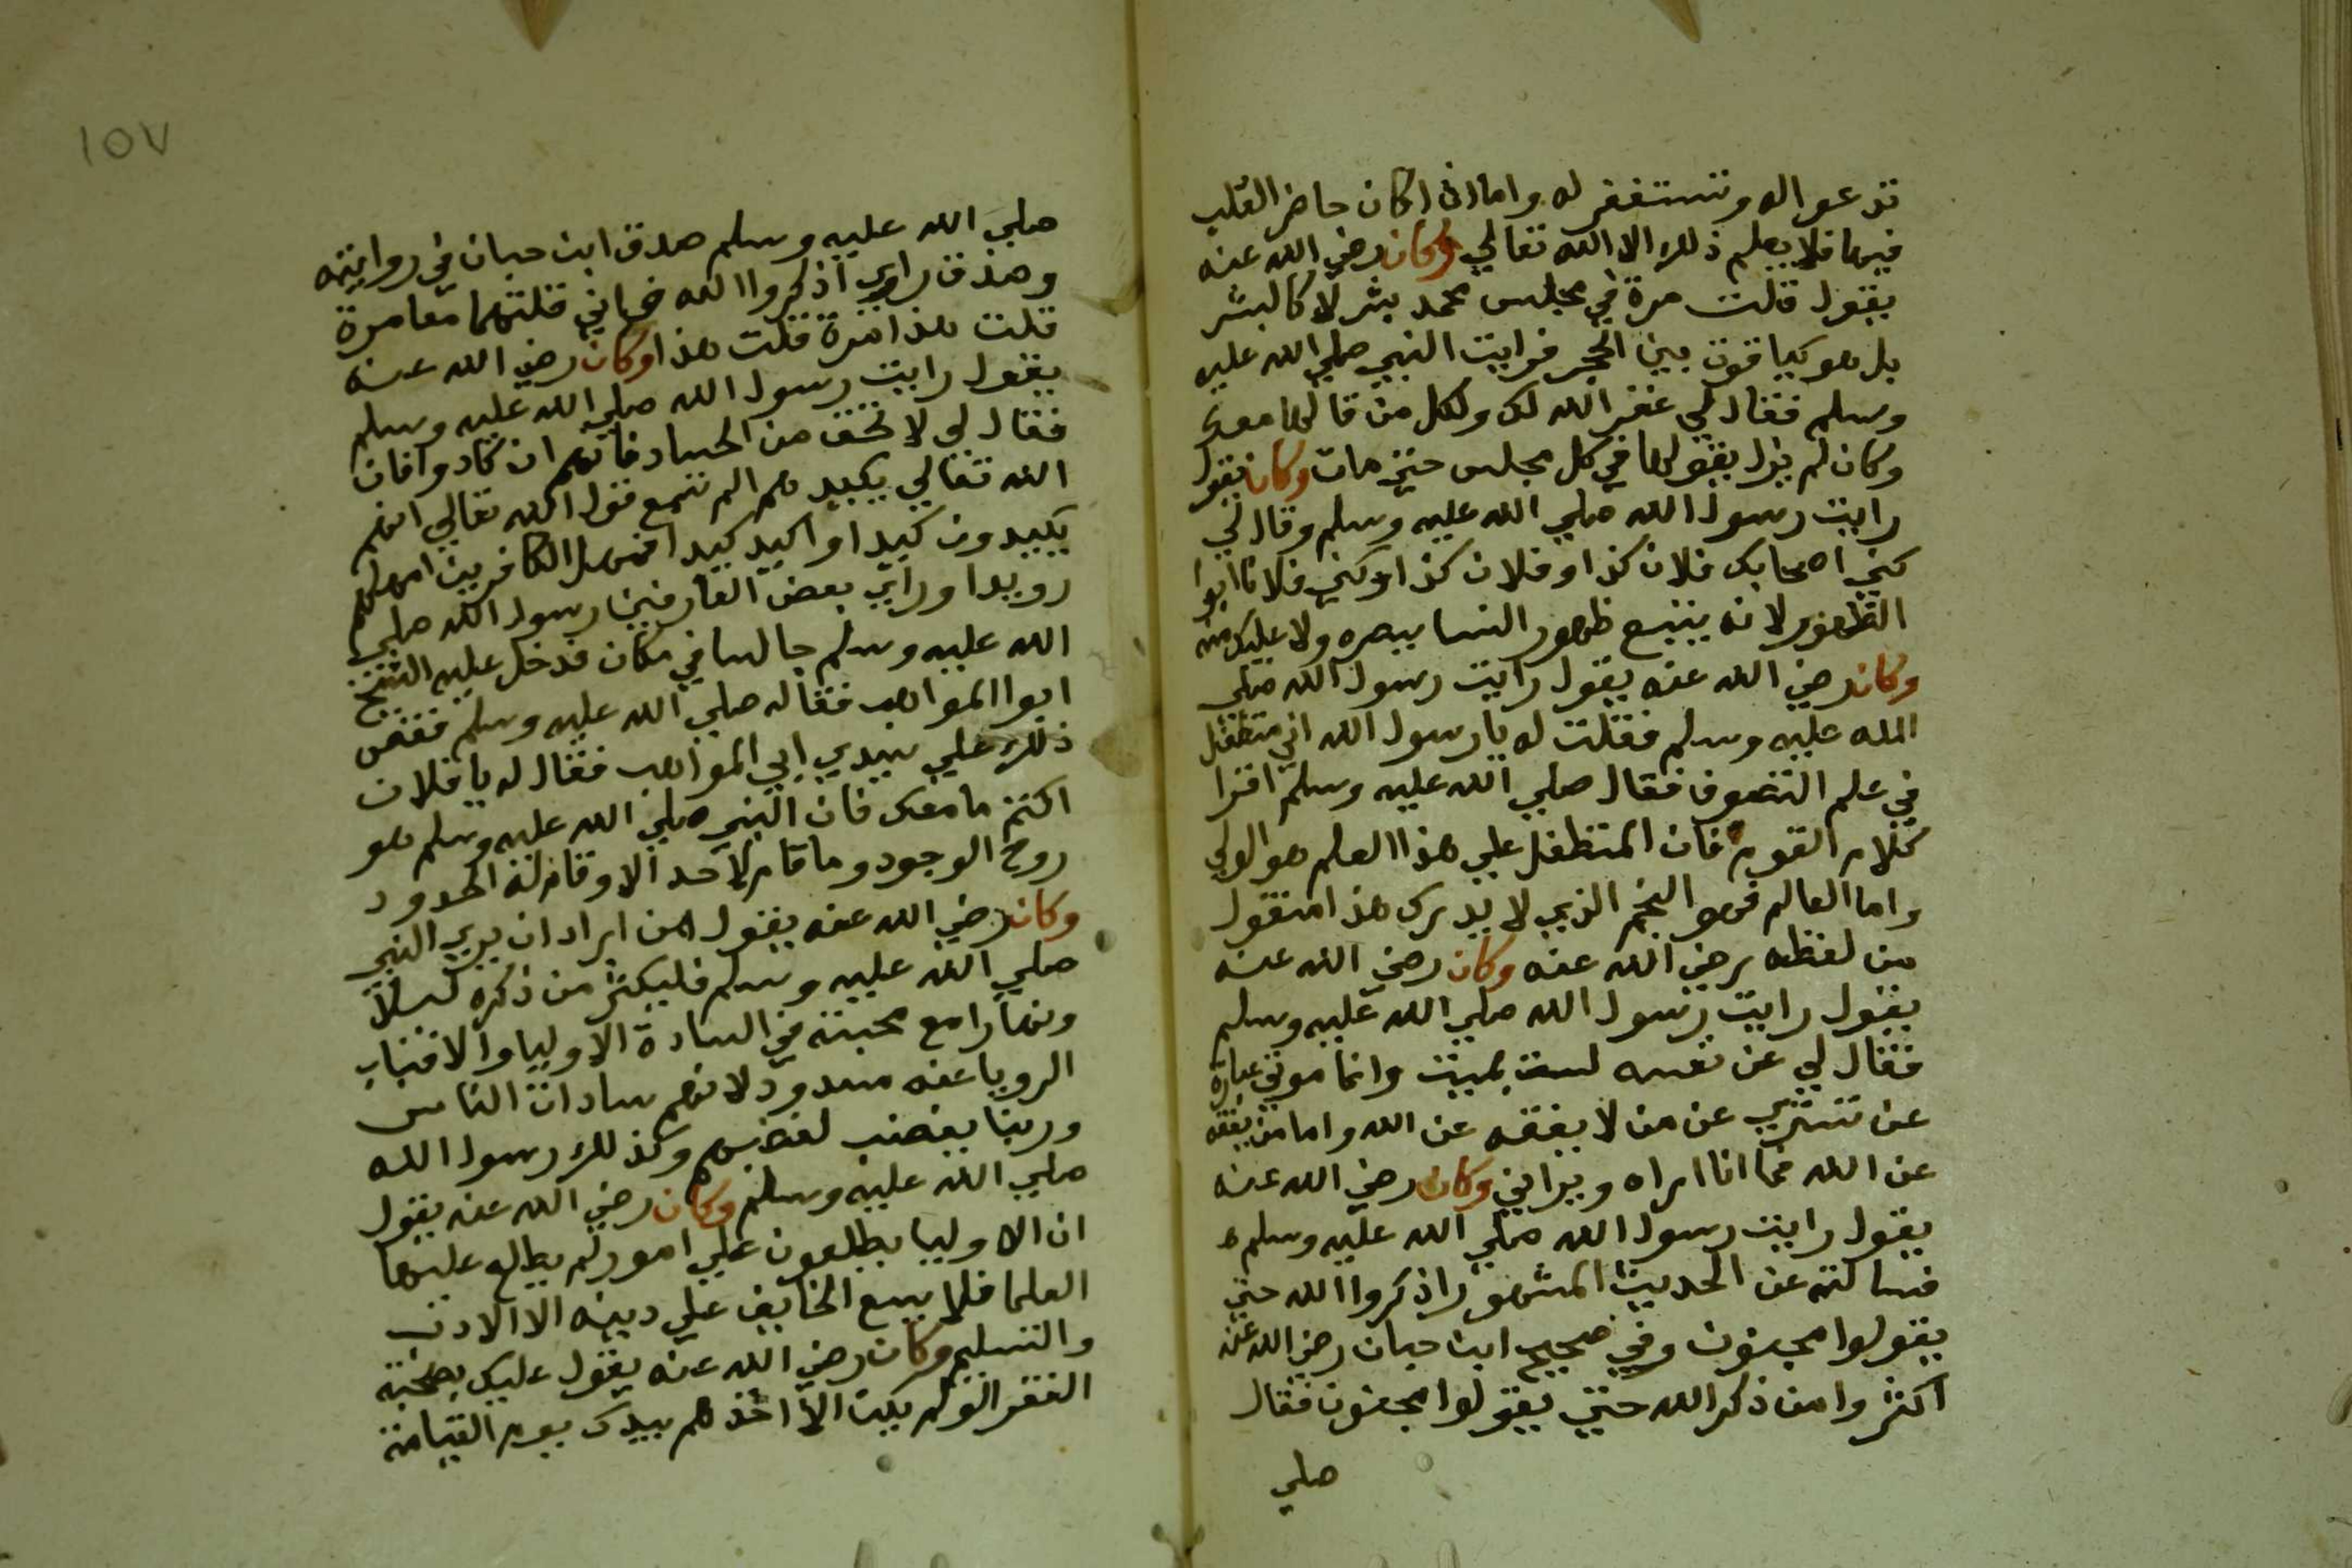 تدعوا له وتستغفر له واما اذا كان حاضر القلب
فيها فلا يعلم ذلك الا الله تعالي وكان رضي الله عنه
يقول قلت مرة في مجلس محمد بشر لا كالبشر
بل هو كياقوت بين الحجر فرايت النبي صلي الله عليه
وسلم فقال لي غفر الله لك ولكل من قالها معك
وكان لم يزل يقولها في كل مجلس حتي مات وكان يقول
رايت رسول الله صلي الله عليه وسلم وقال لي
كني اصحابك فلان كذا وفلان كذا وكني فلانا ابوا
الظهور لانه يتبع ظهور النسا ببصره ولا عليك منه
وكان رضي الله عنه يقول رايت رسول الله صلي
الله عليه وسلم فقلت له يا رسول الله اني متطفل
في علم التصوف فقال صلي الله عليه وسلم اقرا
كلام القوم فان المتطفل علي هذا العلم هو الولي
واما العالم فهو النجم الذي لا يدرك هذا منقول
من لفظه رضي الله عنه وكان رضي الله عنه
يقول رايت رسول الله صلي الله عليه وسلم
فقال لي عن نفسه لست بميت وانما موتي عبارة
عن تستري عن من لا يفقه عن الله واما من يفقه
عن الله فها انا اراه ويراني وكان رضي الله عنه
يقول رايت رسول الله صلي الله عليه وسلم
فسالته عن الحديث المشهور اذكروا الله حتي
يقولوا مجنون وفي صحيح ابن حبان رضي الله عنه
اكثروا من ذكر الله حتي يقولوا مجنون فقال
صلي
١٥٧
صلي الله عليه وسلم صدق ابن حبان في روايته
وصدق راوي اذكروا الله فاني قلتهما معا مرة
قلت هذا مرة قلت هذا وكان رضي الله عنه
يقول رايت رسول الله صلي الله عليه وسلم
فقال لي لا تخف من الحساد فانهم ان كادوا فان
الله تعالي يكيدهم الم تسمع قول الله تعالي انهم
يكيدون كيدا واكيد كيدا فمهل الكافرين امهلهم
رويدا وراي بعض العارفين رسول الله صلي
الله عليه وسلم جالسا في مكان فدخل عليه الشيخ
ابوا المواهب فقام له صلي الله عليه وسلم فقص
ذلك علي سيدي ابي المواهب فقال له يا فلان
اكتم ما معك فان النبي صلي الله عليه وسلم هو
روح الوجود وما قام لاحد الا وقام له الحدود
وكان رضي الله عنه يقول من اراد ان يري النبي
صلي الله عليه وسلم فليكثر من ذكره ليلا
ونهارا مع محبته في السادة الاوليا والا فباب
الرويا عنه مسدود لانهم سادات الناس
وربنا يغضب لغضبهم وكذلك رسول الله
صلي الله عليه وسلم وكان رضي الله عنه يقول
ان الاوليا يطلعون علي امور لم يطلع عليها
العلما فلا يسع الخايف علي دينه الا الادب
والتسليم وكان رضي الله عنه يقول عليك بصحبة
الفقرا لو لم يكن الا اخذهم بيدك يوم القيامة